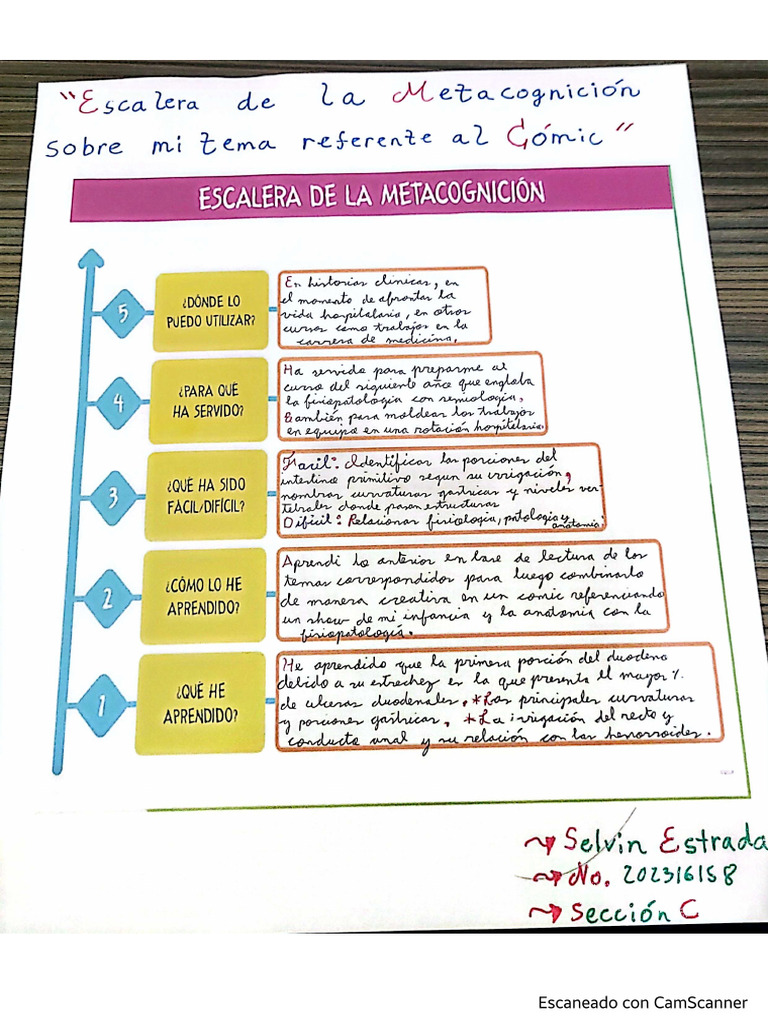 "Escalera de la Metacognición
sobre mi tema referente al Cómic"
ESCALERA DE LA METACOGNICIÓN
5
¿DÓNDE LO
PUEDO UTILIZAR?
En historias clínicas, en
el momento de afrontar la
vida hospitalaria, en otros
cursos como trabajos en la
carrera de medicina.
4
¿PARA QUÉ
HA SERVIDO?
Ha servido para preparme al
curso del siguiente año que engloba
la fisiopatología con semiología,
también para moldear los trabajos
en equipo en una rotación hospitalaria.
3
¿QUÉ HA SIDO
FÁCIL/DIFÍCIL?
Facil: Identificar las porciones del
intestino primitivo segun su irrigación,
nombrar curvaturas gastricas y niveles ver
tebrales donde pasan estructuras
Dificil: Relacionar fisiologia, patologia y
anatomia.
2
¿CÓMO LO HE
APRENDIDO?
Aprendi lo anterior en base de lectura de los
temas correspondidos para luego combinarlo
de manera creativa en un comic referenciando
un show de mi infancia y la anatomia con la
fisiopatología.
1
¿QUÉ HE
APRENDIDO?
He aprendido que la primera porción del duodeno
debido a su estrechez es la que presenta el mayor %
de ulceras duodenales. *Las principales curvaturas
y porciones gastricas, *La irrigación del recto y
conducto anal y su relación con las hemorroides.
Selvin Estrada
No. 202316158
Sección C
Escaneado con CamScanner